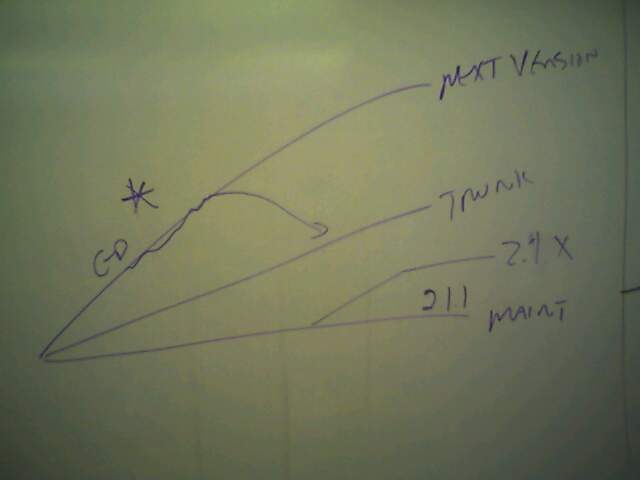 NEXT VERSION
TRUNK
2.4 X
21.1
MAINT